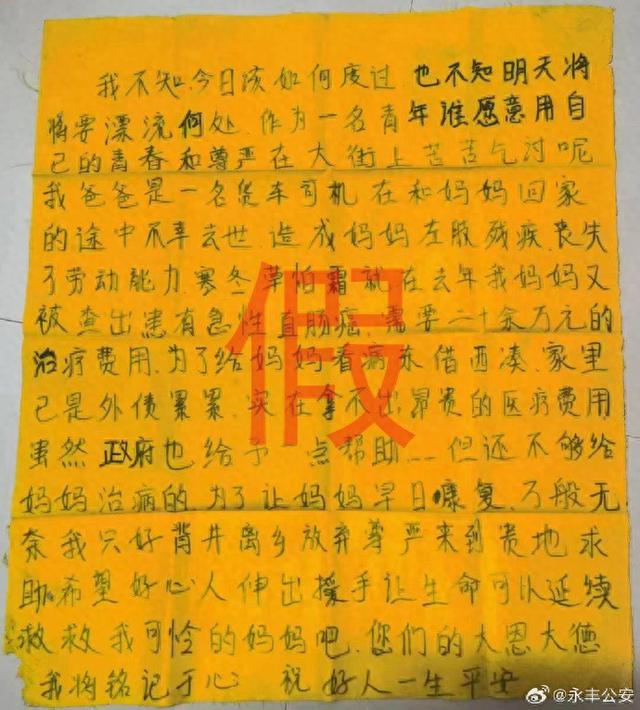 我不知.今日该如何度过 也不知明天将
将要漂流何处.作为一名青年谁愿意用自
己的青春和尊严在大街上苦苦乞讨呢
我爸爸是一名货车司机 在和妈妈回家
的途中不幸去世 造成妈妈左肢残疾.丧失
了劳动能力.寒冬草怕霜就在去年我妈妈又
被查出患有急性直肠癌.需要二十余万元的
治疗费用.为了给妈妈看病东借西凑.家里
已是外债累累.实在拿不出昂贵的医疗费用
虽然政府也给予 点帮助……但还不够给
妈妈治病的.为了让妈妈早日康复.万般无
奈我只好背井离乡放弃尊严来到贵地求
助.希望好心人伸出援手让生命可以延续
救救我可怜的妈妈吧.您们的大恩大德
我将铭记于心 祝好人一生平安
假
@永丰公安